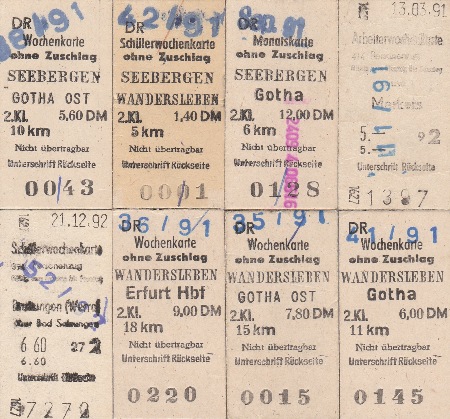 DR
Wochenkarte
ohne Zuschlag
SEEBERGEN
GOTHA OST
2.Kl. 5,60 DM
10 km
Nicht übertragbar
Unterschrift Rückseite
00/43
42/91
DR
Schülerwochenkarte
ohne Zuschlag
SEEBERGEN
WANDERSLEBEN
2.Kl. 1,40 DM
5 km
Nicht übertragbar
Unterschrift Rückseite
0001
DR
Monatskarte
ohne Zuschlag
SEEBERGEN
Gotha
2.Kl. 12,00 DM
6 km
Nicht übertragbar
Unterschrift Rückseite
0128
13.03.91
5.-
5.-
92
Unterschrift Rückseite
1397
21.12.92
Schülerwochenkarte
52/91
über Bad Salzungen
6.60 272
6.60
7272
36/91
DR
Wochenkarte
ohne Zuschlag
WANDERSLEBEN
Erfurt Hbf
2.Kl. 9,00 DM
18 km
Nicht übertragbar
Unterschrift Rückseite
0220
35/91
DR
Wochenkarte
ohne Zuschlag
WANDERSLEBEN
GOTHA OST
2.Kl. 7,80 DM
15 km
Nicht übertragbar
Unterschrift Rückseite
0015
41/91
DR
Wochenkarte
ohne Zuschlag
WANDERSLEBEN
Gotha
2.Kl. 6,00 DM
11 km
Nicht übertragbar
Unterschrift Rückseite
0145